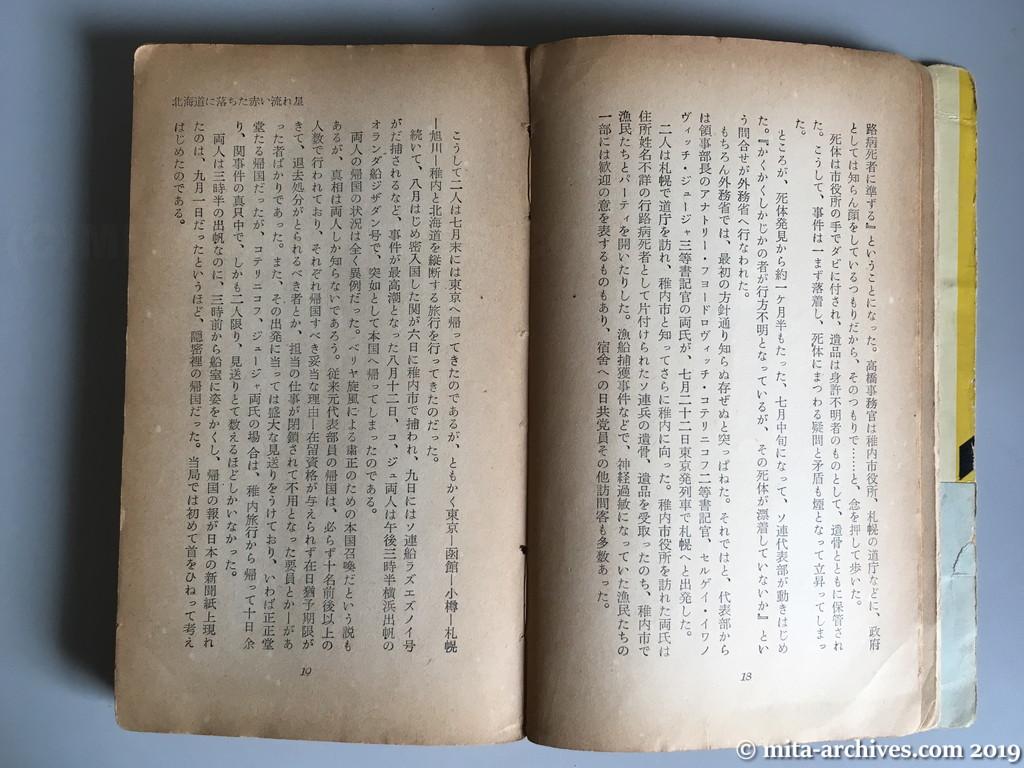 路病死者に準ずる』ということになった。高橋事務官は稚内市役所、札幌の道庁などに、政府
としては知らん顔をしているつもりだから、そのつもりで……と、念を押して歩いた。
死体は市役所の手でダビに付され、遺品は身許不明者のものとして、遺骨とともに保管され
た。こうして、事件は一まず落着し、死体にまつわる疑問と矛盾も煙となって立昇ってしまっ
た。
ところが、死体発見から約一ケ月半もたった、七月中旬になって、ソ連代表部が動きはじめ
た。『かくかくしかじかの者が行方不明となっているが、その死体が漂着していないか』とい
う問合せが外務省へ行なわれた。
もちろん外務省では、最初の方針通り知らぬ存ぜぬと突っぱねた。それではと、代表部から
は領事部長のアナトリー・フョードロヴィッチ・コテリニコフ二等書記官、セルゲイ・イワノ
ヴィッチ・ジュージャ三等書記官の両氏が、七月二十二日東京発列車で札幌へと出発した。
二人は札幌で道庁を訪れ、稚内市と知ってさらに稚内に向った。稚内市役所を訪れた両氏は
住所姓名不詳の行路病死者として片付けられたソ連兵の遺骨、遺品を受取ったのち、稚内市で
漁民たちとパーティを開いたりした。漁船捕獲事件などで、神経過敏になっていた漁民たちの
一部には歓迎の意を表するものもあり、宿舎への日共党員その他訪問客も多数あった。
18
北海道に落ちた赤い流れ星
こうして二人は七月末には東京へ帰ってきたのであるが、ともかく東京―函館―小樽―札幌
―旭川―稚内と北海道を縦断する旅行を行ってきたのだった。
続いて、八月はじめ密入国した関が六日に稚内市で捕われ、九日にはソ連船ラズエズノイ号
がだ捕されるなど、事件が最高潮となった八月十二日、コ、ジュ両人は午後三時半横浜出帆の
オランダ船ジザダン号で、突如として本国へ帰ってしまったのである。
両人の帰国の状況は全く異例だった。ベリヤ旋風による粛正のための本国召喚だという説も
あるが、真相は両人しか知らないであろう。従来元代表部員の帰国は、必らず十名前後以上の
人数で行われており、それぞれ帰国すべき妥当な理由―在留資格が与えられず在日猶予期限が
きて、退去処分がとられるべき者とか、担当の仕事が閉鎖されて不用となった要員とか―があ
った者ばかりであった。また、その出発に当っては盛大な見送りをうけており、いわば正正堂
堂たる帰国だったが、コテリニコフ、ジュージャ両氏の場合は、稚内旅行から帰って十日余
り、関事件の真只中で、しかも二人限り、見送りとて数えるほどしかいなかった。
両人は三時半の出帆なのに、三時前から船室に姿をかくし、帰国の報が日本の新聞紙上現れ
たのは、九月一日だったというほど、隠密裡の帰国だった。当局では初めて首をひねって考え
はじめたのである。
19
© mita-archives.com 2019